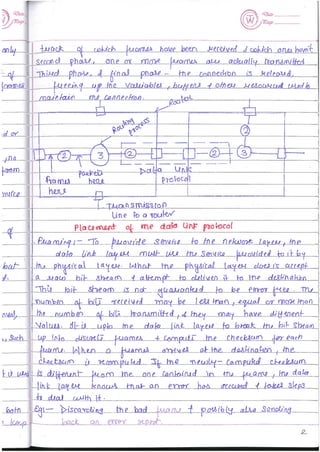 only
track of which frames have been received & which ones haven't
second phase, one or more frames are actually transmitted
of
Third phase, & final phase - the connection is released,
frames
freeing up the variables, buffers & other resources used to
maintain the connection.
Router
Routing
process
d or
2
2
3
2
2
3
Frames
here
Packets
here
Data link
protocol
Transmission
Line to a router
of
Placement of the data link protocol
Framing :- To provide service to the network layer, the
data link layer must use the service provided to it by
the physical layer. What the physical layer does is accept
a raw bit stream & attempt to deliver it to the destination
This bit stream is not guaranteed to be error free. The
number of bits received may be less than, equal or more than
the number of bits transmitted, & they may have different
Values. It is upto the data link layer to break the bit stream
up into discrete frames & compute the checksum for each
frame. When a frame arrives at the destination, the
checksum is recomputed. If the newly-computed checksum
is different from the one contained in the frame, the data
link layer knows that an error has occured & takes steps
to deal with it.
both
Eg:- Discarding the bad frame & possibly also sending
back an error report.
2